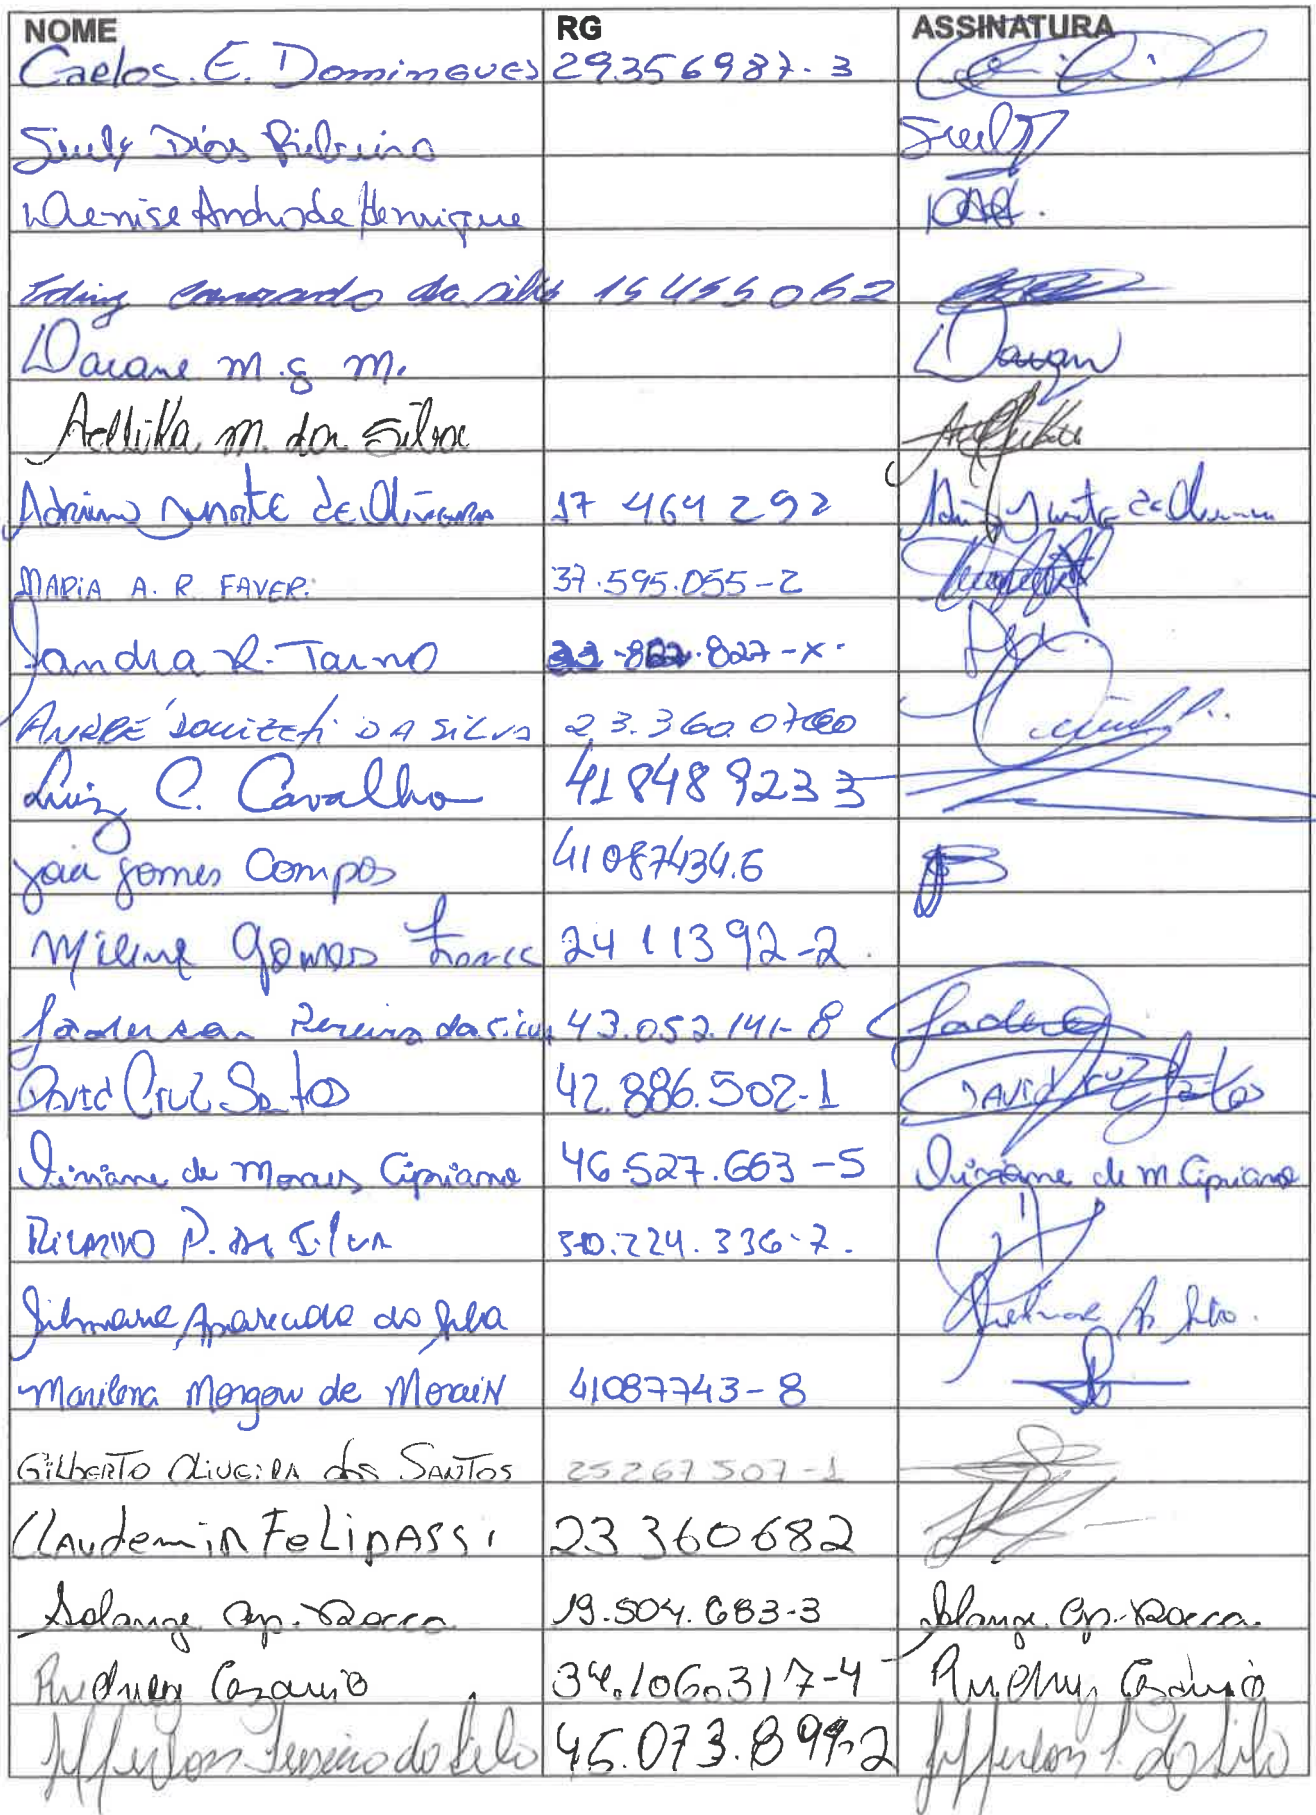 NOME RG ASSINATURA
Carlos. E. Domingues 29356987-3
Suely Dias Ribeiro Suely
Denise Andrade Henrique
da Silva 15455062
Daiane m. g m. Daian
m. da Silva
Adriano de Oliveira 17 464 292
MARIA A. R. FAVER. 37.595.055-2
Sandra R. Tarno 827-X
ANDRÉ DONIZETI DA SILVA 23.360.07
Luiz C. Carvalho 418489233
Gomes Campos 41087434.6
Milene Gomes 2411392-2
Jaderson Pereira da Silva 43.052.141-8 Jader
David Cruz Santos 42.886.502-1 DAVID CRUZ Santos
Viviane de Moraes Cipriano 46.527.663-5 Viviane de M. Cipriano
RICARDO P. DA SILVA 30.224.336-7.
Silmara Aparecida da Silva
Marilena Morgon de Morais 41087743-8
GILBERTO OLIVEIRA dos SANTOS 25267507-1
Claudemir FeLipASSi 23360682
Solange Ap. Rocca 19.504.683-3 Solange Ap. Rocca
Rudney Cazario 34.106.317-4 Rudney Cazario
Jefferson da Silva 45.073.899-2 Jefferson da Silva